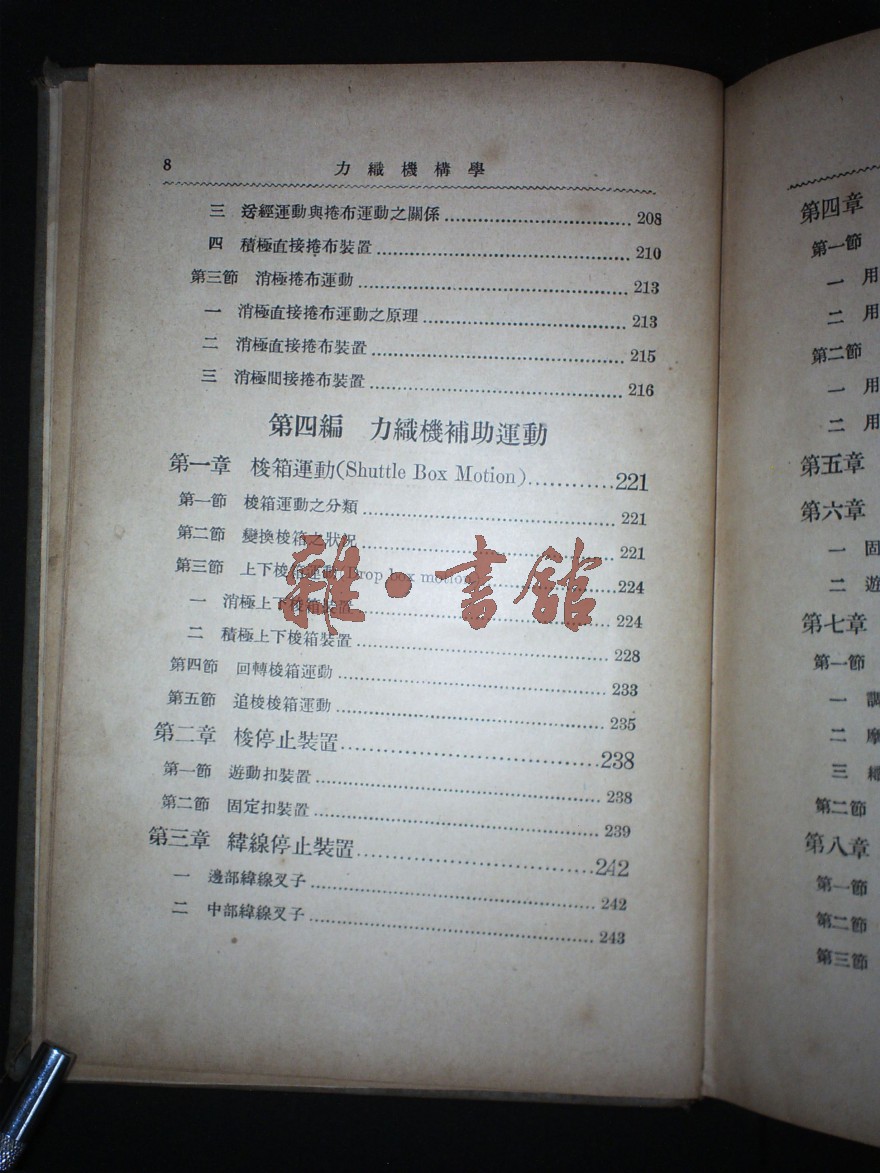 8 力織機構學
三 送經運動與捲布運動之關係 208
四 積極直接捲布裝置 210
第三節 消極捲布運動 213
一 消極直接捲布運動之原理 213
二 消極直接捲布裝置 215
三 消極間接捲布裝置 216
第四編 力織機補助運動
第一章 梭箱運動(Shuttle Box Motion) 221
第一節 梭箱運動之分類 221
第二節 變換梭箱之狀況 221
第三節 上下梭箱運動(Drop box motion) 224
一 消極上下梭箱裝置 224
二 積極上下梭箱裝置 228
第四節 回轉梭箱運動 233
第五節 追梭梭箱運動 235
第二章 梭停止裝置 238
第一節 遊動扣裝置 238
第二節 固定扣裝置 239
第三章 緯線停止裝置 242
一 邊部緯線叉子 242
二 中部緯線叉子 243
雜·書館
第四章
第一節
一 用
二 用
第二節
一 用
二 用
第五章
第六章
一 固
二 遊
第七章
第一節
一 調
二 摩
三
第二節
第八章
第一節
第二節
第三節